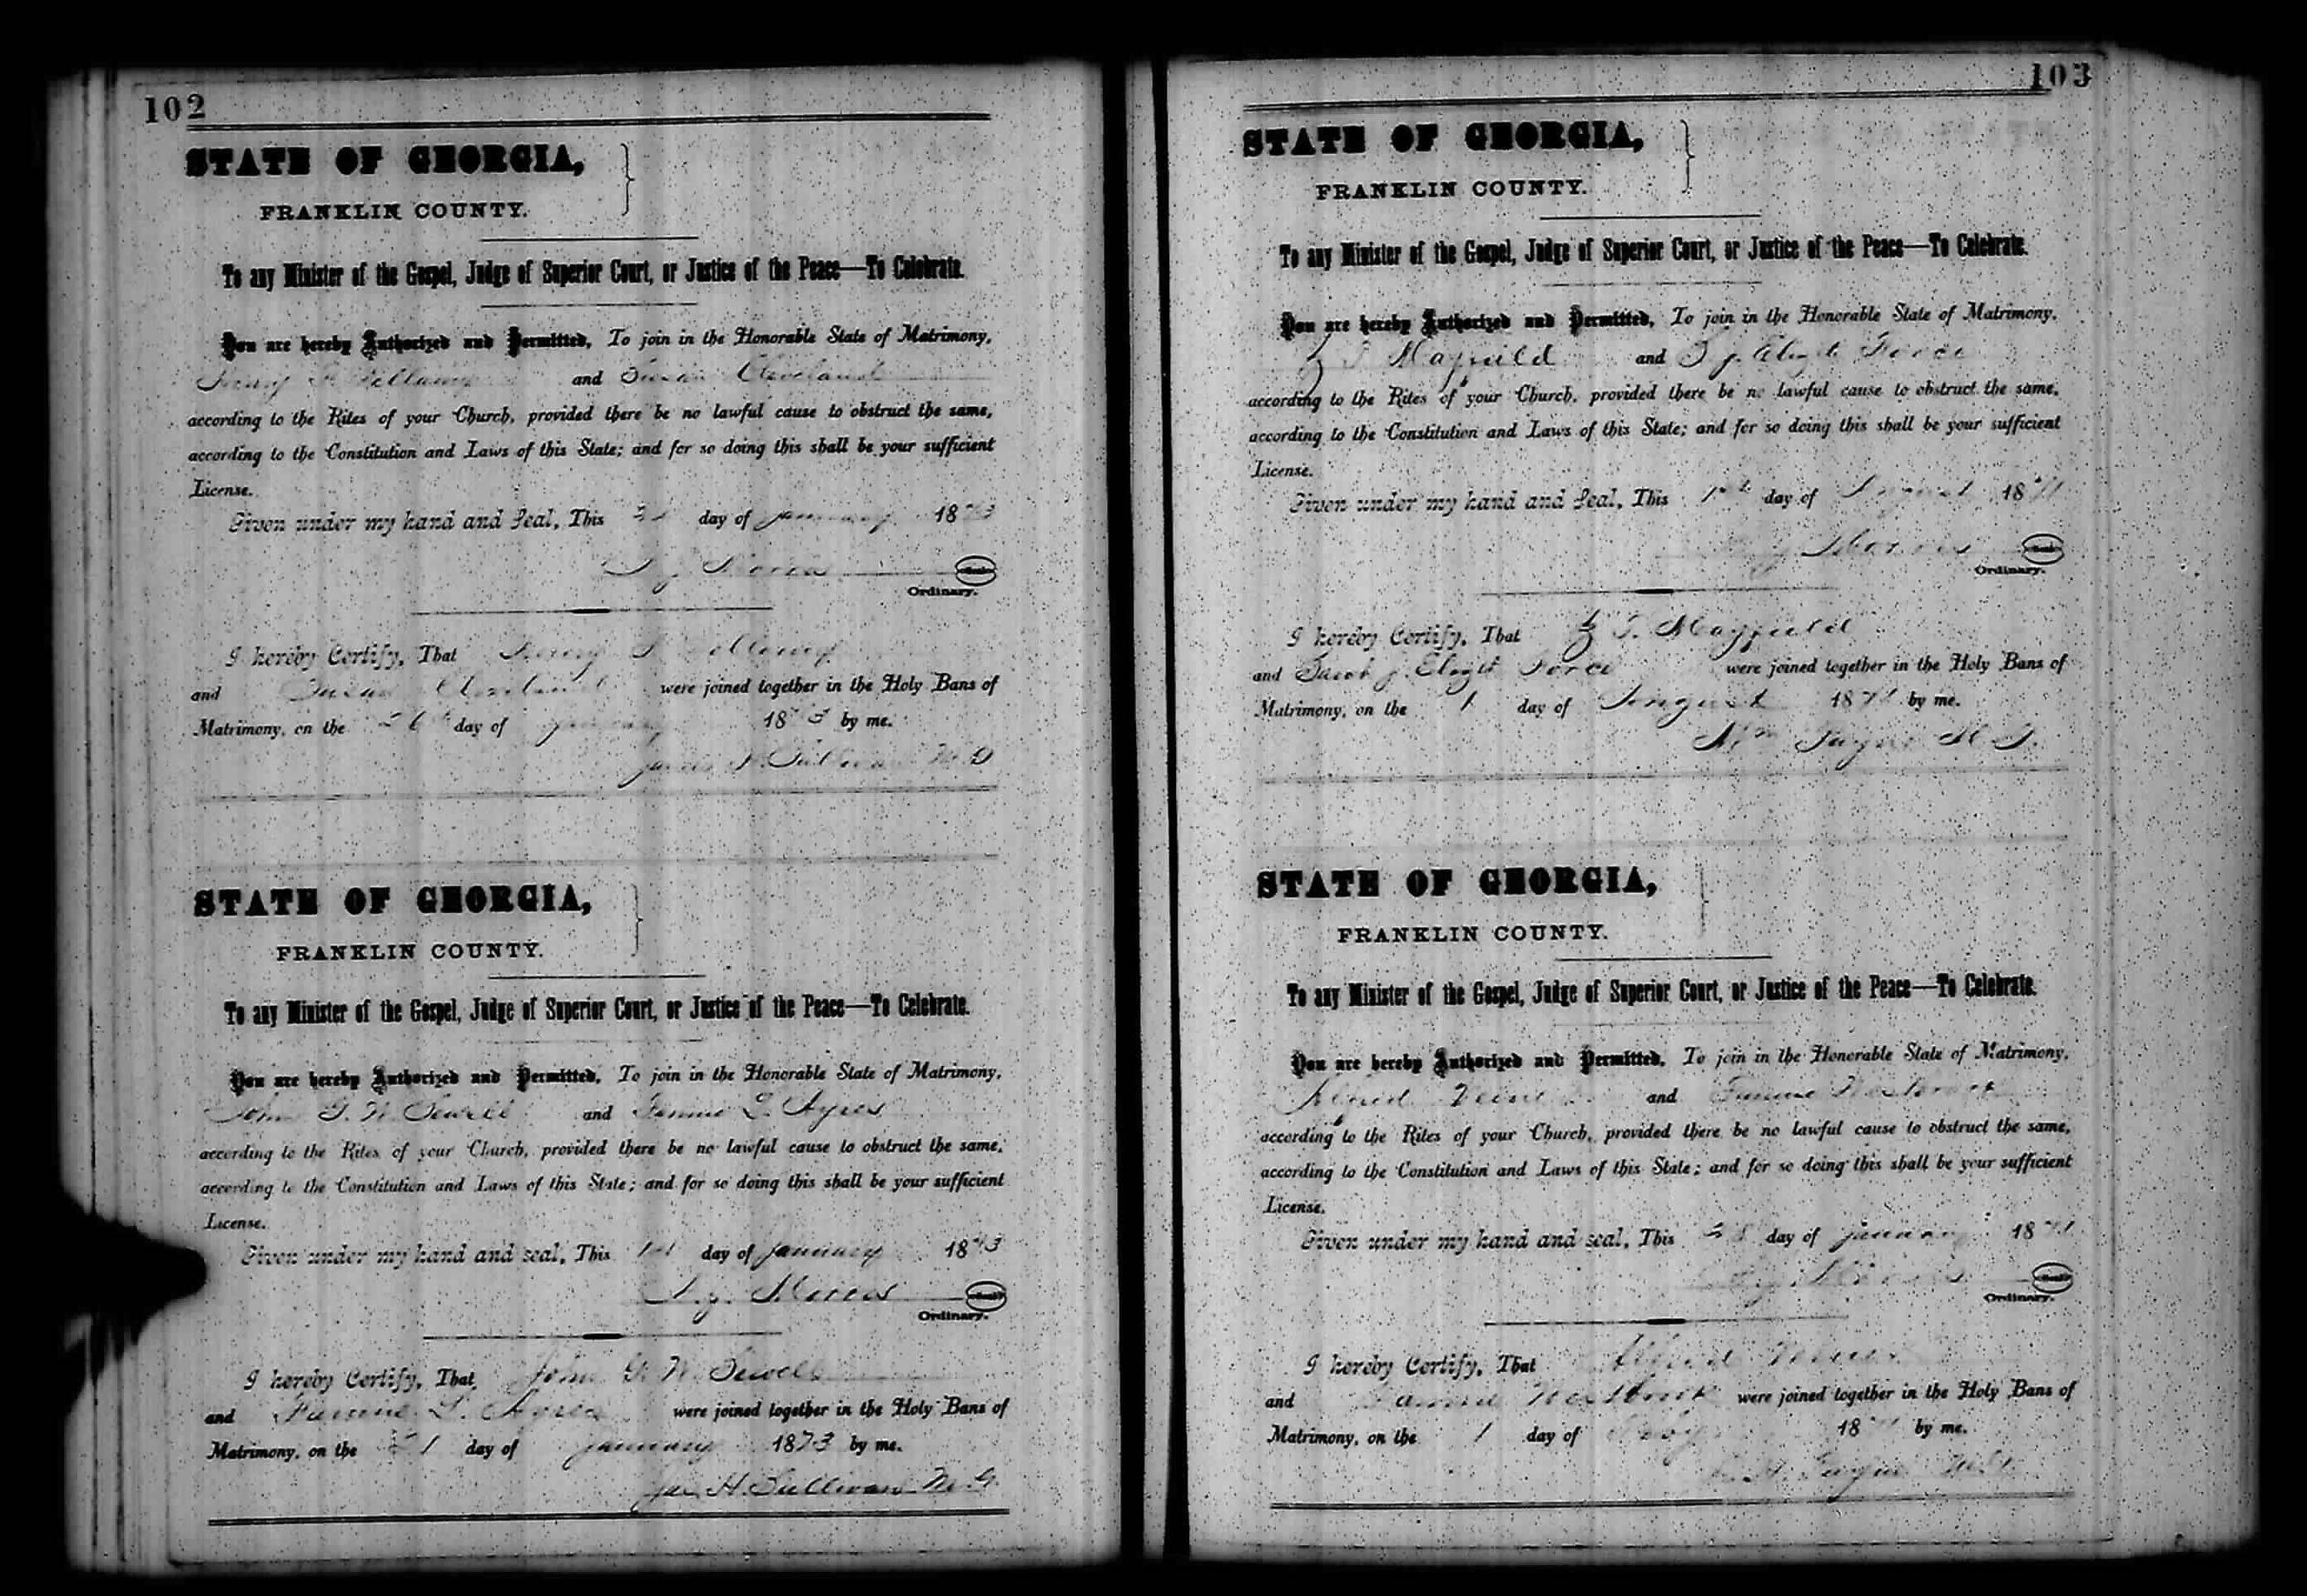 102
STATE OF GEORGIA,
FRANKLIN COUNTY.
To any Minister of the Gospel, Judge of Superior Court, or Justice of the Peace—To Celebrate.
You are hereby Authorized and Permitted, To join in the Honorable State of Matrimony,
and Susan Cleveland
according to the Rites of your Church, provided there be no lawful cause to obstruct the same,
according to the Constitution and Laws of this State; and for so doing this shall be your sufficient
License.
Given under my hand and Seal, This day of January 1873
Ordinary.
I hereby Certify, That
and Susan Cleveland were joined together in the Holy Bans of
Matrimony, on the 26 day of January 1873 by me.
James H. Sullivan M. G
STATE OF GEORGIA,
FRANKLIN COUNTY.
To any Minister of the Gospel, Judge of Superior Court, or Justice of the Peace—To Celebrate.
You are hereby Authorized and Permitted, To join in the Honorable State of Matrimony,
John G. W. Sewell and Fannie L. Ayres
according to the Rites of your Church, provided there be no lawful cause to obstruct the same,
according to the Constitution and Laws of this State; and for so doing this shall be your sufficient
License.
Given under my hand and seal, This day of January 1873
Ordinary.
I hereby Certify, That John G. W. Sewell
and Fannie L. Ayres were joined together in the Holy Bans of
Matrimony, on the 21 day of January 1873 by me.
Jas H. Sullivan M. G.
103
STATE OF GEORGIA,
FRANKLIN COUNTY.
To any Minister of the Gospel, Judge of Superior Court, or Justice of the Peace—To Celebrate.
You are hereby Authorized and Permitted, To join in the Honorable State of Matrimony,
Z T Mayfield and
according to the Rites of your Church, provided there be no lawful cause to obstruct the same,
according to the Constitution and Laws of this State; and for so doing this shall be your sufficient
License.
Given under my hand and Seal, This day of August 18
Ordinary.
I hereby Certify, That Z T. Mayfield
and were joined together in the Holy Bans of
Matrimony, on the 1 day of August 18 by me.
STATE OF GEORGIA,
FRANKLIN COUNTY.
To any Minister of the Gospel, Judge of Superior Court, or Justice of the Peace—To Celebrate.
You are hereby Authorized and Permitted, To join in the Honorable State of Matrimony,
and Fannie Westbrook
according to the Rites of your Church, provided there be no lawful cause to obstruct the same,
according to the Constitution and Laws of this State; and for so doing this shall be your sufficient
License.
Given under my hand and seal, This day of January 18
Ordinary.
I hereby Certify, That Alfred
and Fannie Westbrook were joined together in the Holy Bans of
Matrimony, on the 1 day of 18 by me.